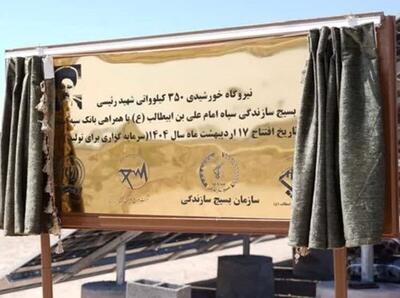 نیروگاه خورشیدی ۳۵۰ کیلوواتی شهید رئیسی
بسیج سازندگی سپاه امام علی بن ابیطالب (ع) با همراهی بانک سپه
تاریخ افتتاح ۱۷ اردیبهشت ماه سال ۱۴۰۴ (سرمایه گذاری برای تولید
سازمان بسیج سازندگی